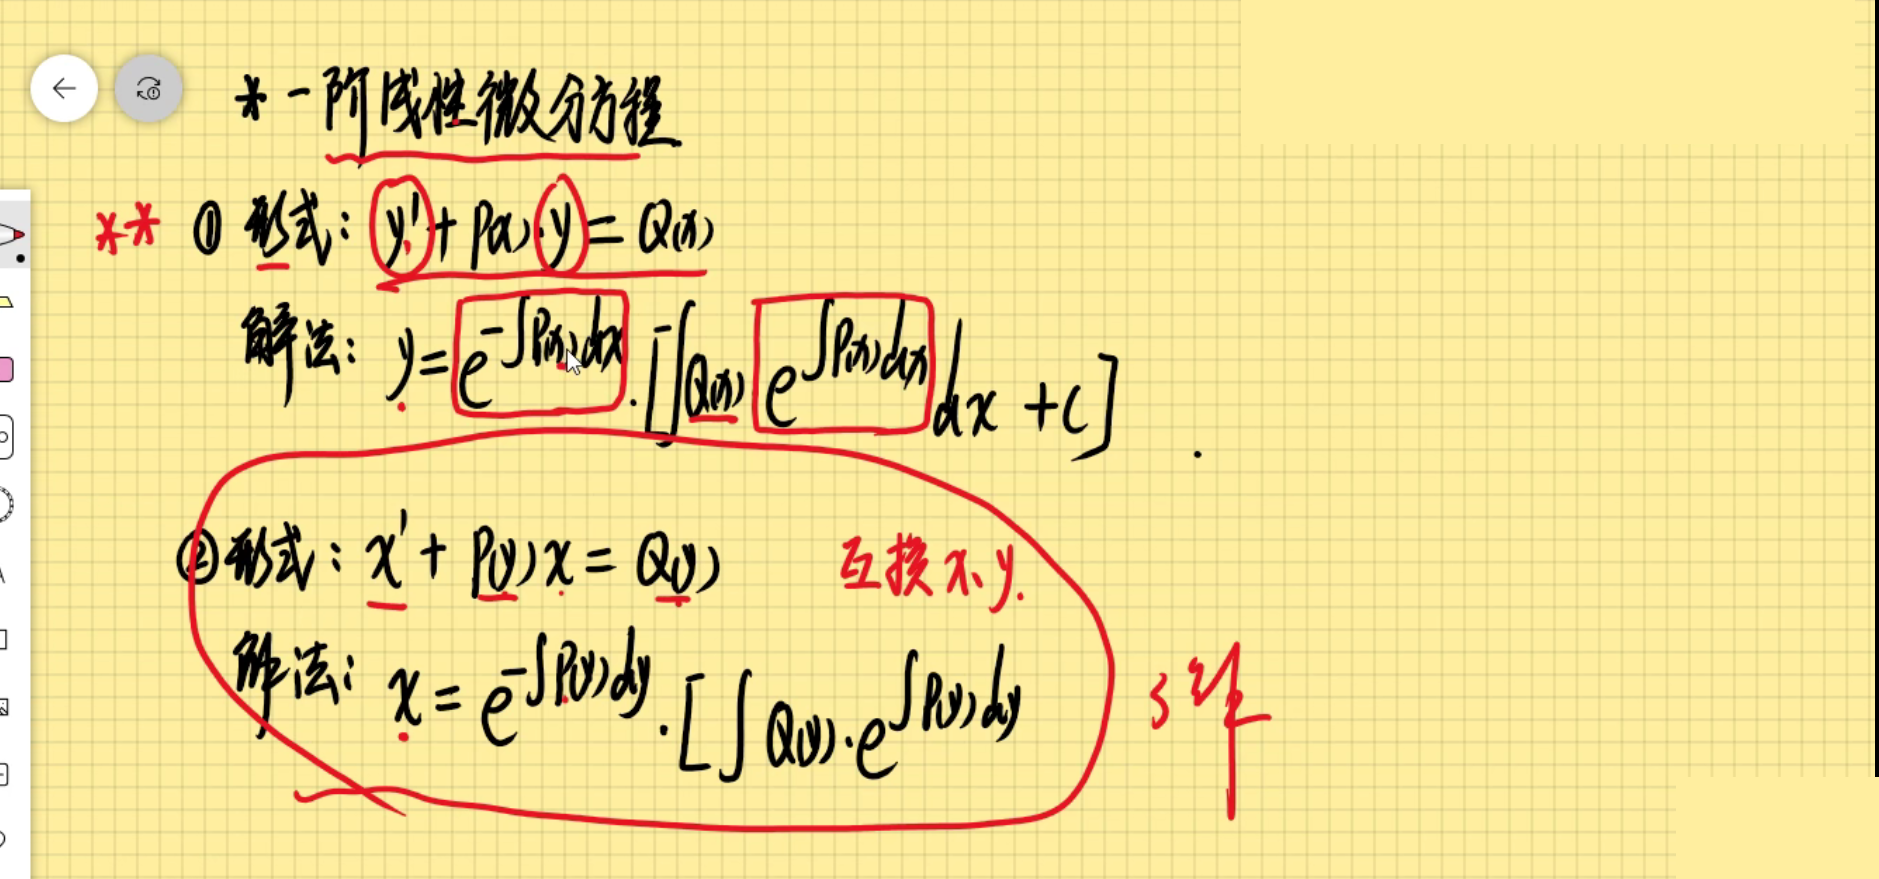 *一阶线性微分方程
** ① 形式: y' + P(x)·y = Q(x)
解法: y = e^{-∫P(x)dx}·[∫Q(x) e^{∫P(x)dx} dx + C].
② 形式: x' + P(y)x = Q(y) 互换x、y.
解法: x = e^{-∫P(y)dy}·[∫Q(y)·e^{∫P(y)dy}